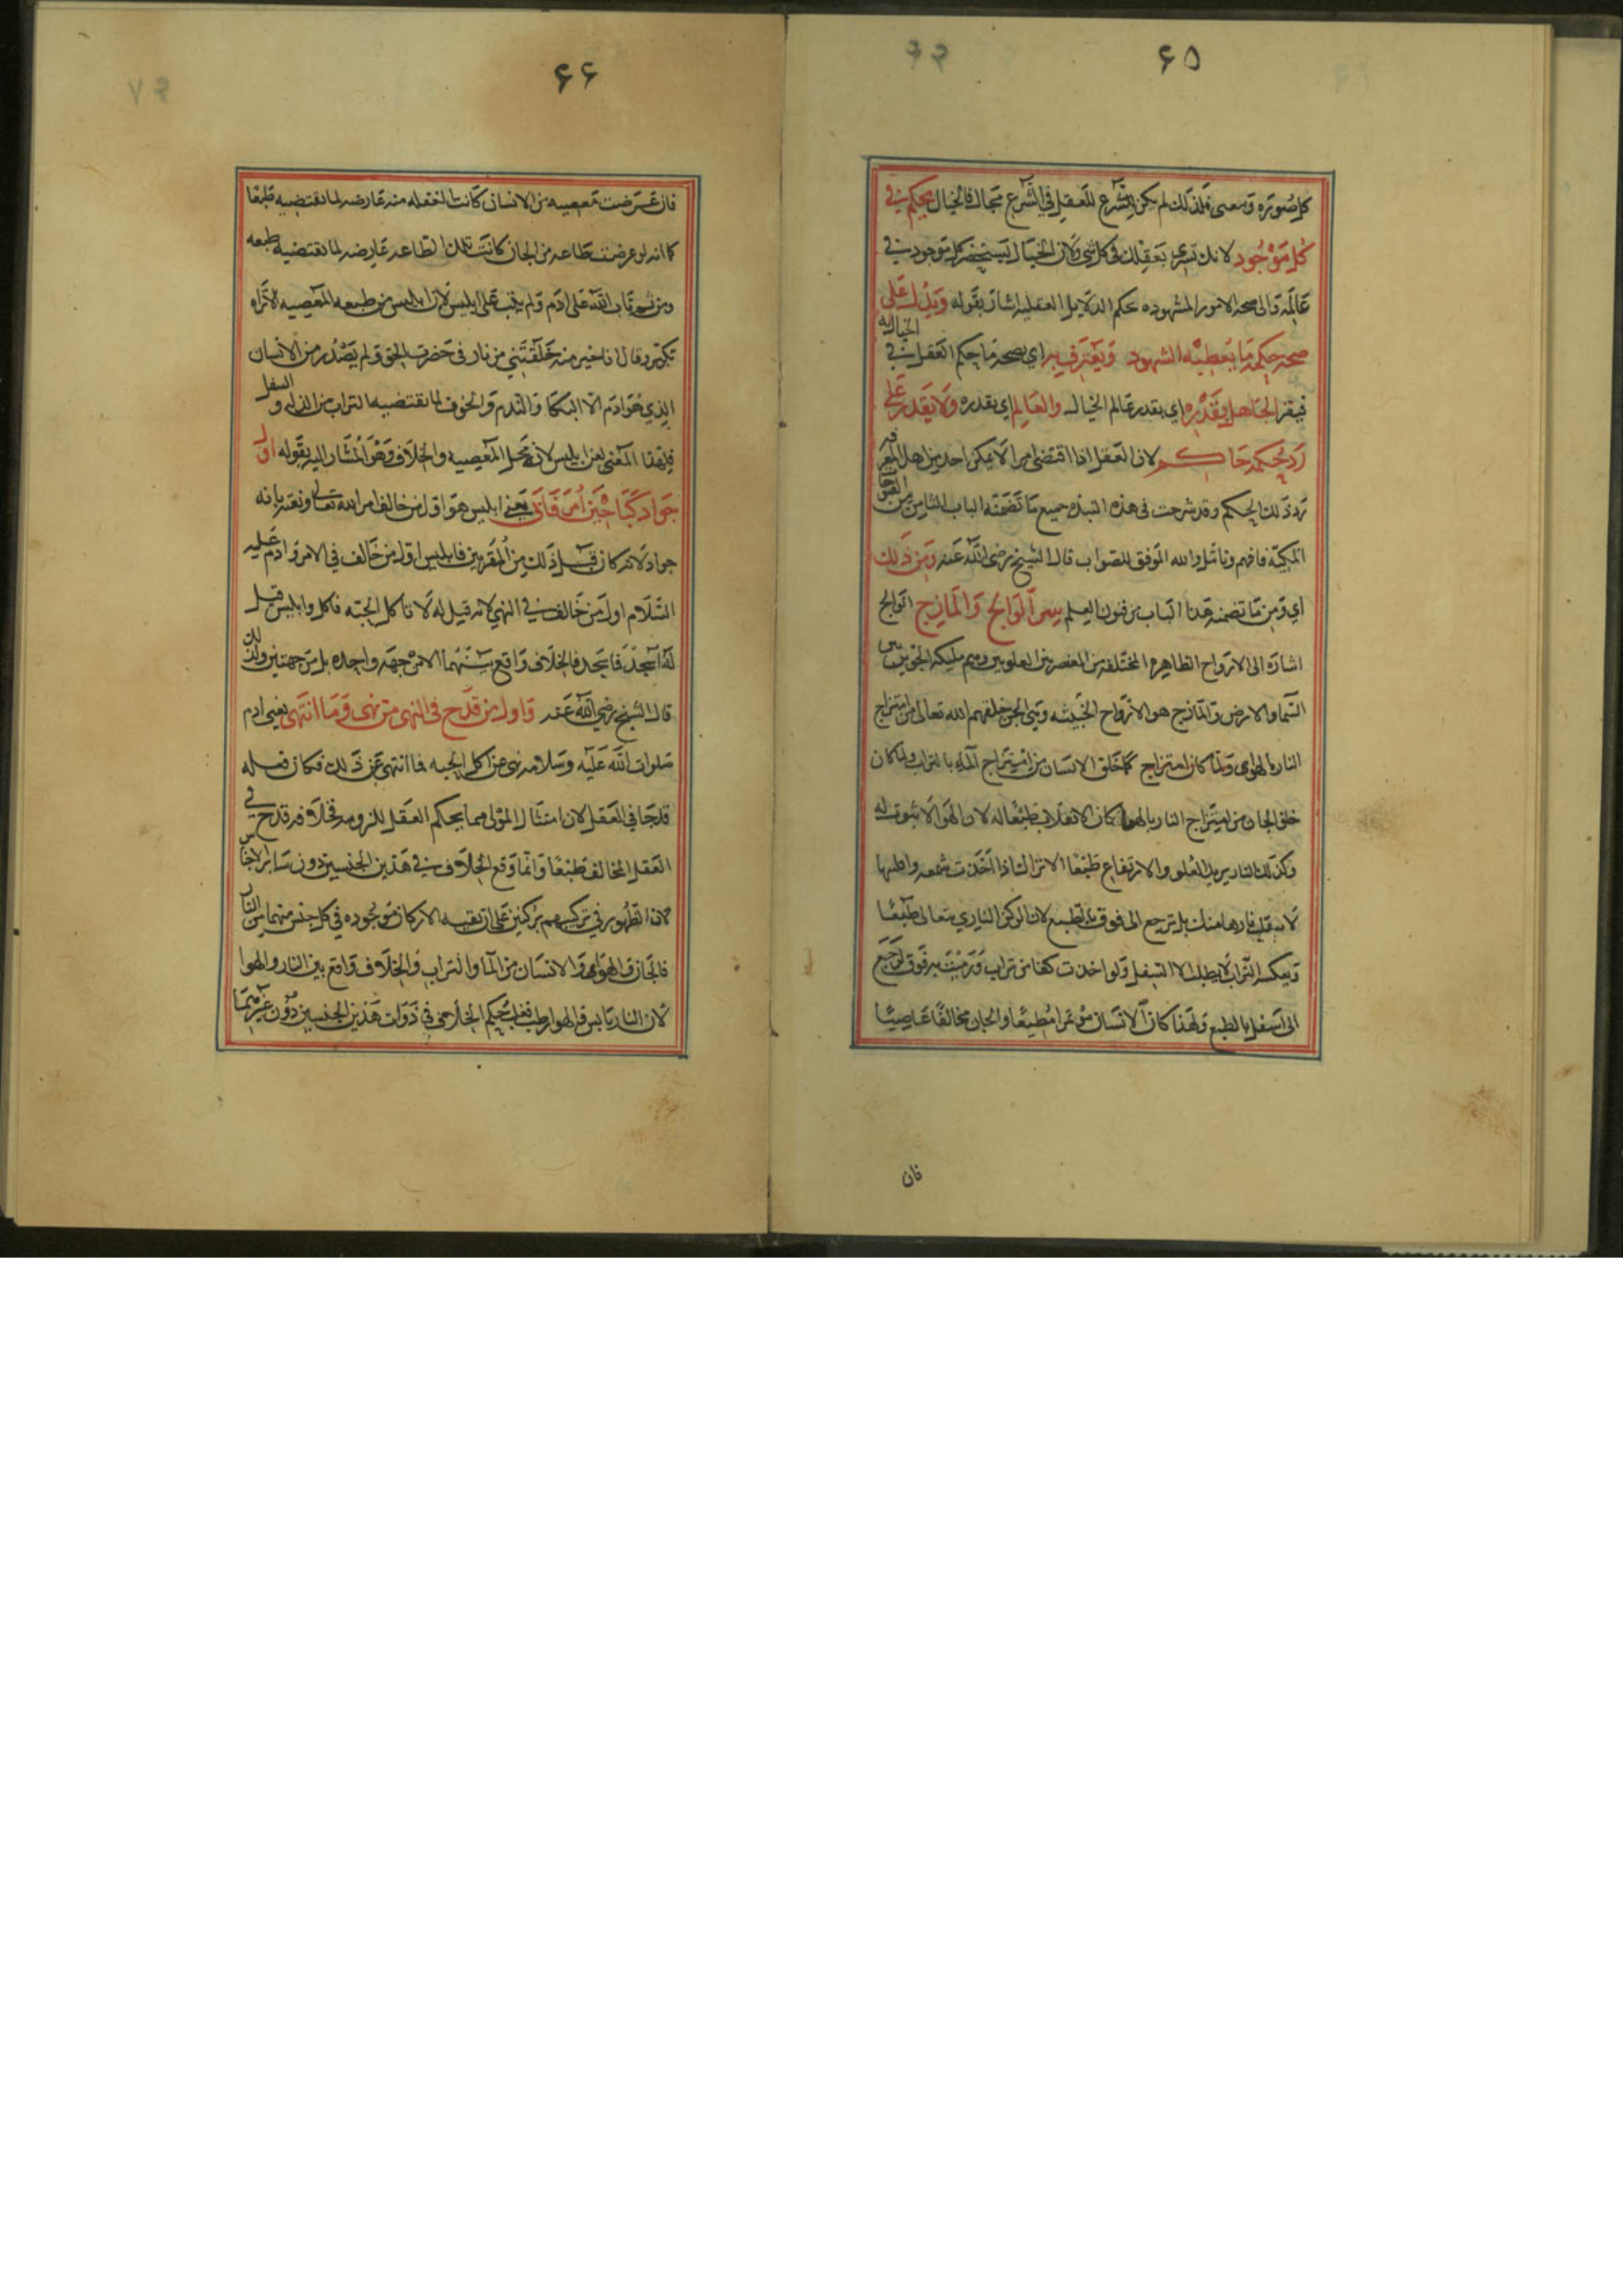 ٦٥
كل صوره ومعنى فلذلك لم يكن للشرع للعقل في الشرع مجال فالخيال يحكم في
كل موجود لانك تسري بعقلك في كل شي ولان الخيال يستحضر كل موجود في
عالمه والى صحه الامور المشهوده حكم الدلايل العقليه اشار بقوله ويدل على
صحه حكمه ما يعطيه الشهود ويعترف به اي بصحه ما حكم العقل في الخياليه
فيقر الجاهل بقدره اي بقدر عالم الخيال والعالم اي بقدره ولا يقدر على
رد حكمه حاكم لان العقل اذا اقتضى امرا لا يمكن احد من اهل المعرفه
رد ذلك الحكم وقد شرحت في هذه النبذه جميع ما تضمنه الباب الثامن من الفتوحات
المكيه فافهم وتامل والله الموفق للصواب قال الشيخ رضى الله عنه ومن ذلك
اي ومن ما تضمنه هذا الباب من فنون العلم سر التوالج والمازج التوالج
اشاره الى الارواح الطاهره المختلفه من العنصر من العلويين وهم مليكه الجو بين
السما والارض والمازج هو الارواح الخبيثه وهي الجن خلقهم الله تعالى من امتزاج
النار بالهوى ولما كان امتزاج كما خلق الانسان من امتزاج الماء بالتراب ولما كان
خلق الجان من امتزاج النار بالهوا كان الانقلاب طبعا له لان الهوا لا ثبوت له
وكذلك النار يريد العلو والارتفاع طبعا الا ترا انك اذا اخذت شمعه واطلبها
لا ينقلب نارها منك بل ترجع الى فوق بالطبع لان الركن الناري متعالى طبعا
وبعكسه التراب لا يطلب الا السفل ولو اخذت كفا من تراب ورميت به فوق لرجع
الى اسفل بالطبع ولهذا كان الانسان مؤتمرا مطيعا والجان مخالفا عاصيا
فان
٦٦
فان عرضت معصيه من الانسان كانت الغفله منه عارضه لما تقتضيه طبعا
كما انه لو عرضت طاعه من الجان كانت تلك الطاعه عارضه لما تقتضيه طبعه
ومن ثم تاب الله على ادم ولم يتب على ابليس لان ابليس من طبعه المعصيه الا تراه
تكبر وقال انا خير منه خلقتني من نار في حضرت الحق ولم يصدر من الانسان
الذي هو ادم الا البكا والندم والخوف لما تقتضيه التراب من الذل والسفل
فلهذا المعنى لعن ابليس لانه محل المعصيه والخلاف وهو المشار اليه بقوله اول
جواد كبا حين امر فابى يعني ابليس هو اول من خالف امر الله تعالى ونعته بانه
جواد لانه كان قبل ذلك من المقربين فابليس اول من خالف في الامر وادم عليه
السلام اول من خالف في النهي لانه قيل له لا تاكل الحبه فاكل وابليس قيل
له اسجد فما سجد فالخلاف واقع منهما الا من جهه واحده بل من جهتين ولذلك
قال الشيخ رضي الله عنه واول من قدح في النهى من نهى وما انتهى يعني ادم
صلوات الله عليه وسلامه نهى عن اكل الحبه فما انتهى عن ذلك فكان فعله
قدحا في العقل لان امتثال المولى مما يحكم العقل للزومه فخلافه قدح في
العقل المخالف طبعا وانما وقع الخلاف في هذين الجنسين دون ساير الاجناس
لان الظهور في تركيبهم بركنين على ان بقيه الاركان موجوده في كل جنس منهما من النار
فالجان والهوا والانسان من الما والتراب والخلاف واقع بين النار والهوا
لان النار يابس والهوا رطب فغلب حكم الخلاف في ذوات هذين الجنسين دون غيرهما